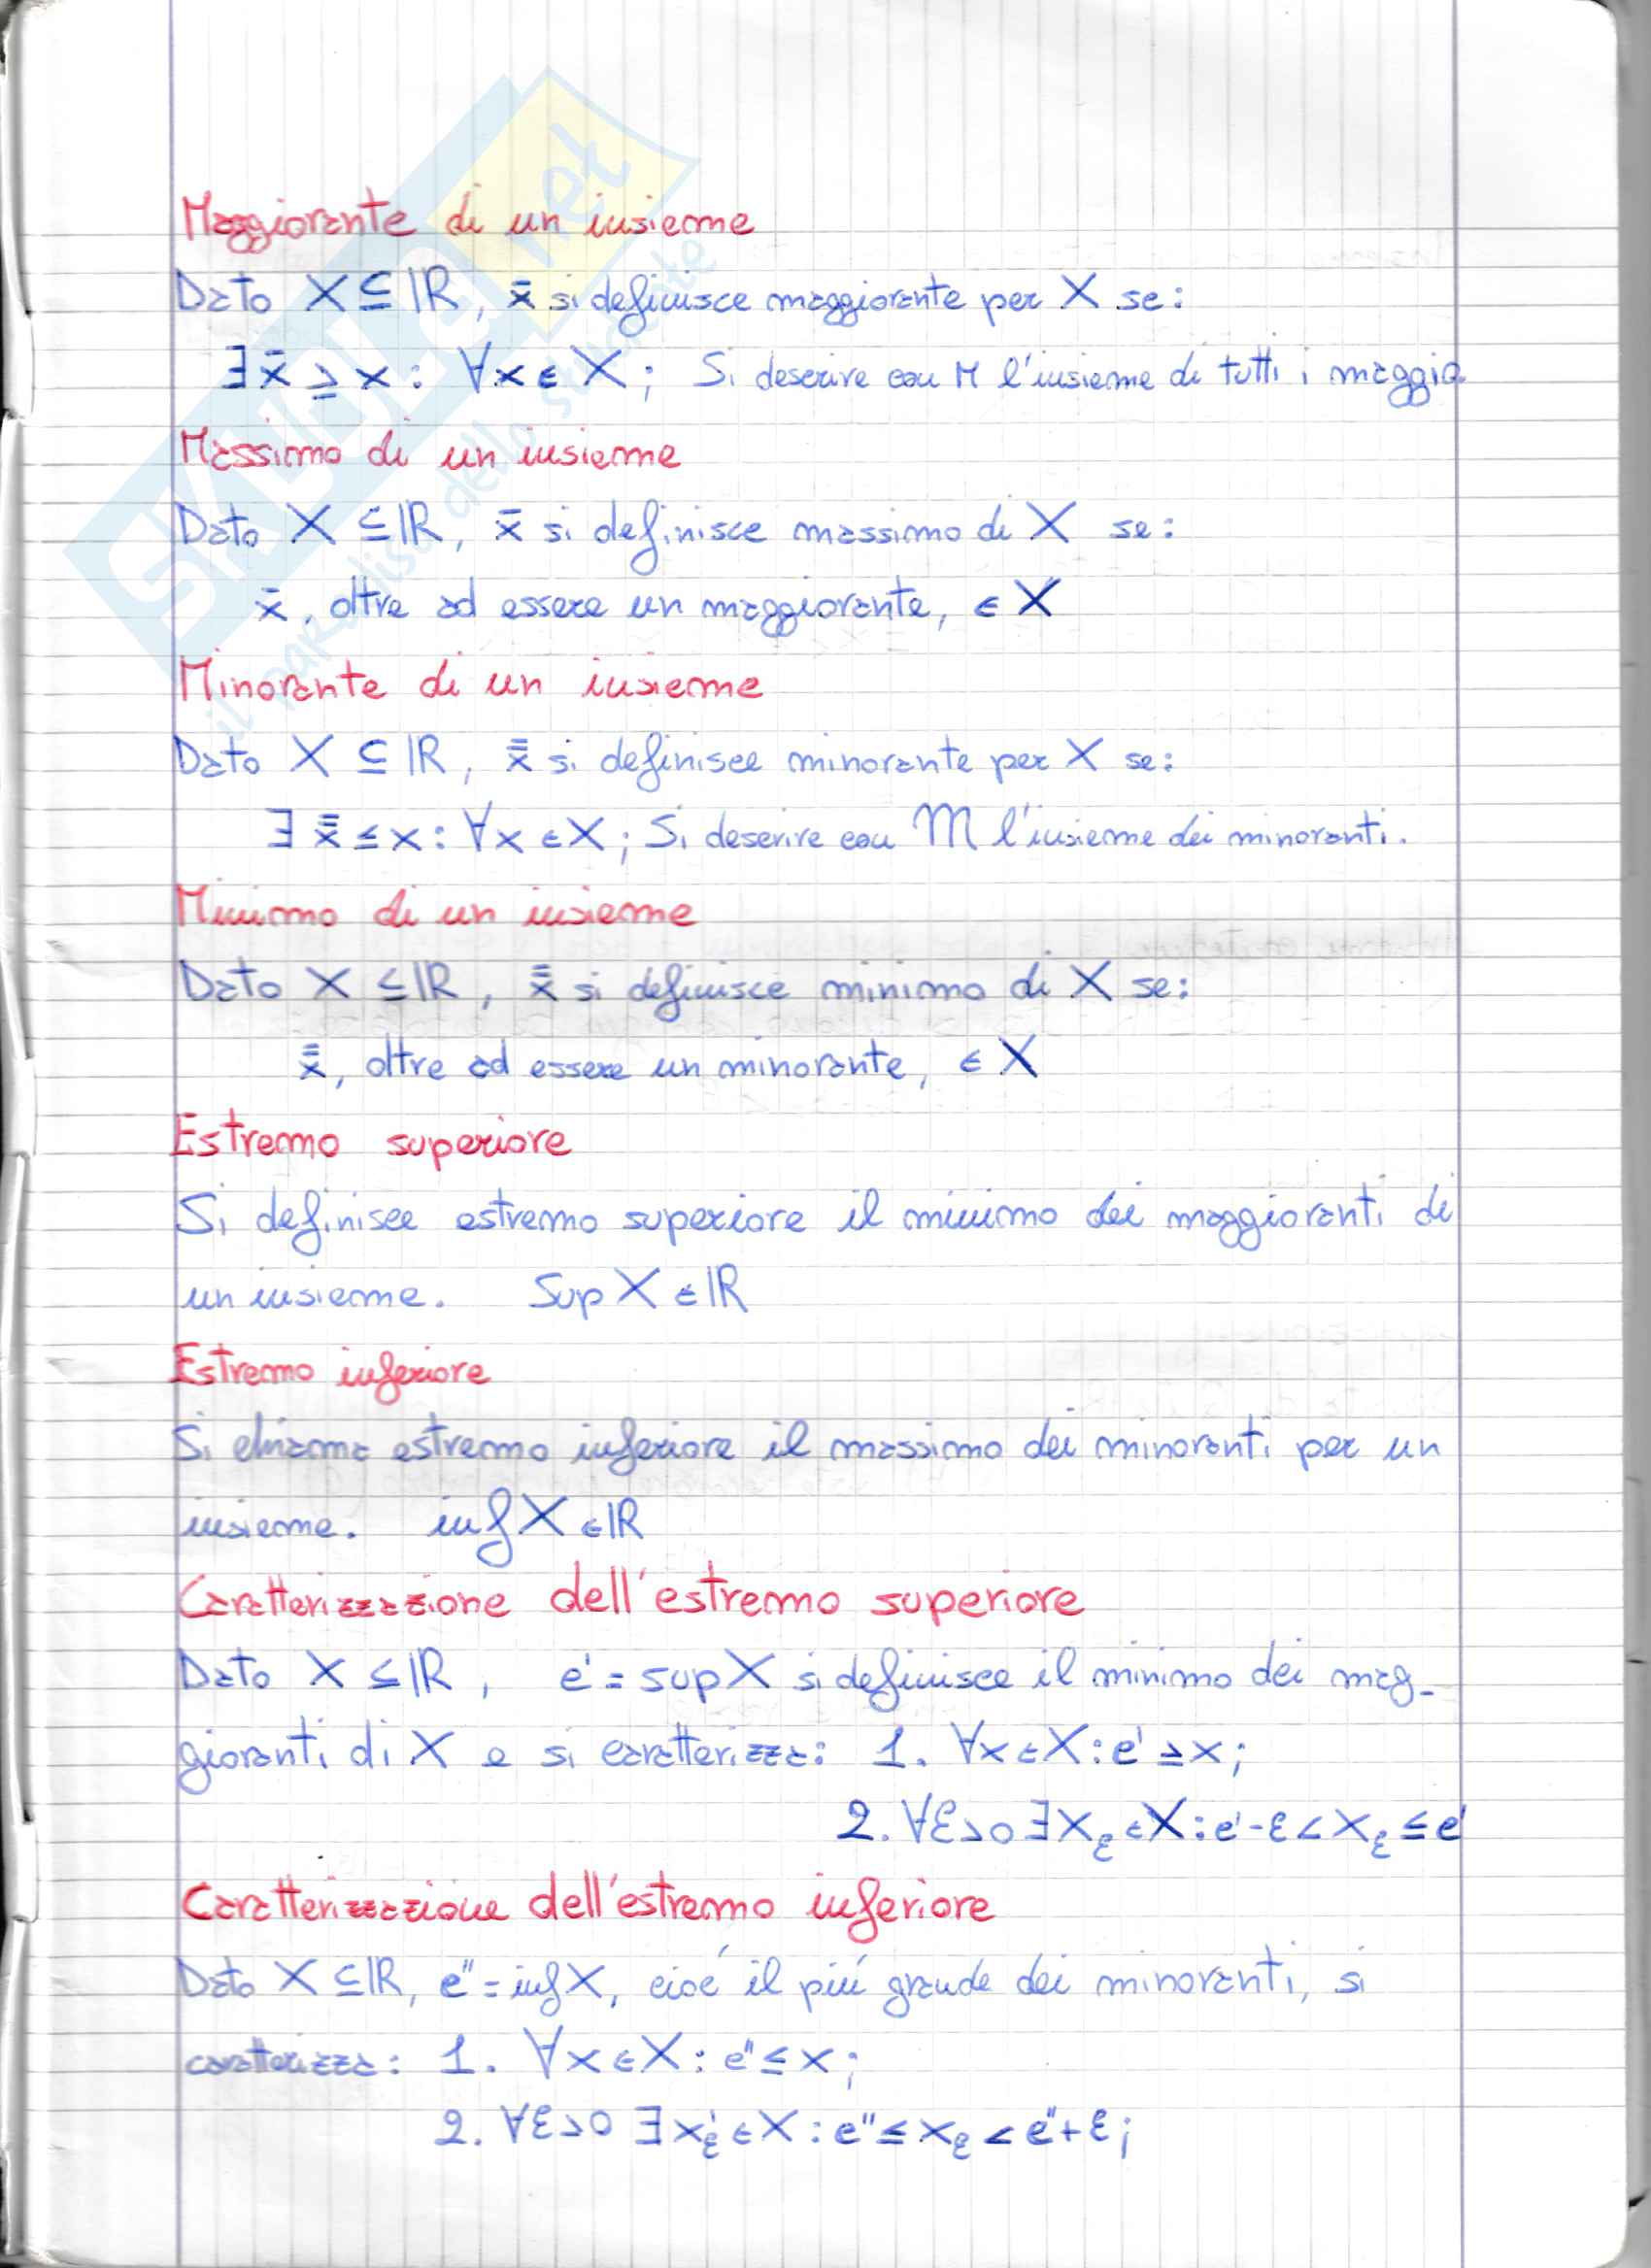 Maggiorante di un insieme
Dato X ⊆ ℝ, x̄ si definisce maggiorante per X se:
∃ x̄ ≥ x : ∀x ∈ X ; Si descrive con M l'insieme di tutti i maggio
Massimo di un insieme
Dato X ⊆ ℝ, x̄ si definisce massimo di X se:
x̄, oltre ad essere un maggiorante, ∈ X
Minorante di un insieme
Dato X ⊆ ℝ, x̿ si definisce minorante per X se:
∃ x̿ ≤ x : ∀x ∈ X ; Si descrive con M l'insieme dei minoranti.
Minimo di un insieme
Dato X ⊆ ℝ, x̿ si definisce minimo di X se:
x̿, oltre ad essere un minorante, ∈ X
Estremo superiore
Si definisce estremo superiore il minimo dei maggioranti di
un insieme. Sup X ∈ ℝ
Estremo inferiore
Si chiama estremo inferiore il massimo dei minoranti per un
insieme. inf X ∈ ℝ
Caratterizzazione dell'estremo superiore
Dato X ⊆ ℝ, e' = sup X si definisce il minimo dei mag-
gioranti di X e si caratterizza: 1. ∀x ∈ X : e' ≥ x ;
2. ∀ε > 0 ∃ x_ε ∈ X : e' - ε < x_ε ≤ e'
Caratterizzazione dell'estremo inferiore
Dato X ⊆ ℝ, e'' = inf X, cioé il piú grande dei minoranti, si
caratterizza: 1. ∀x ∈ X : e'' ≤ x ;
2. ∀ε > 0 ∃ x'_ε ∈ X : e'' ≤ x_ε < e'' + ε ;
SKUOLA.net
il paradiso dello studente